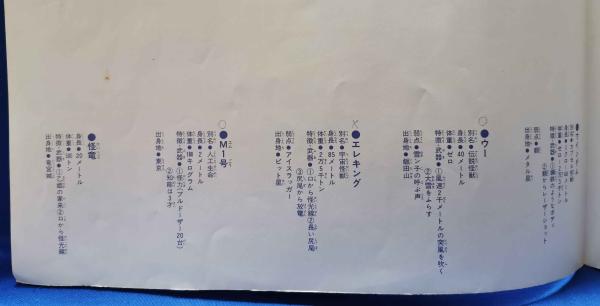 弱点●
出身地●メタル星
○
●ウー
別名●伝説怪獣
身長●40メートル
体重●ゼロ
特徴・武器●①風速2千メートルの突風を吹く
②大雪をふらす
弱点●雪ン子の呼ぶ声
出身地●飯田山
×
●エレキング
別名●宇宙怪獣
身長●85メートル
体重●2万5千トン
特徴・武器●①口から怪光線②長い尻尾
③尻尾から放電
弱点●アイスラッガー
出身地●ピット星
○
●M1号
別名●人工生命
身長●2メートル
体重●100キログラム
特徴・武器●①怪力(ブルドーザー20台)
②知能は3才
出身地●東京
●怪竜
身長●20メートル
体重●100トン
特徴・武器●①乙姫の家来②口から怪光線
出身地●竜宮城